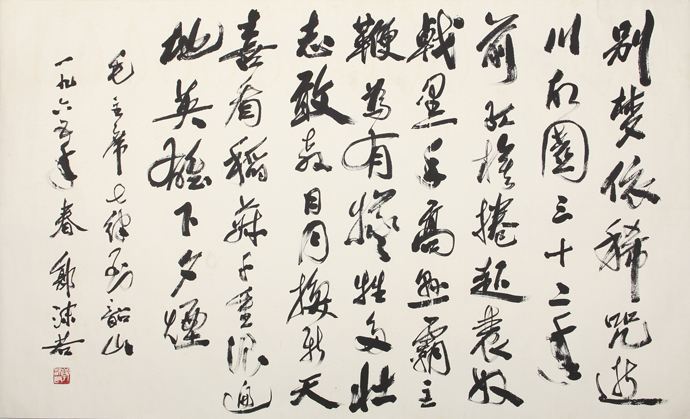 别梦依稀咒逝
川故園三十二年
前紅旗捲起農奴
戟黑手高懸霸主
鞭為有犧牲多壯
志敢教日月換新天
喜看稻菽千重浪遍
地英雄下夕煙
毛主席七律到韶山
一九六五年春 郭沫若